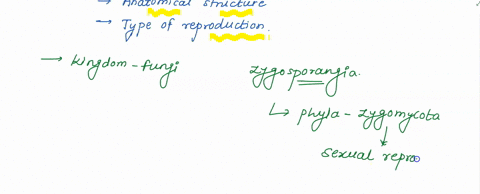 → Anatomical structure
→ Type of reproduction.
→ kingdom - fungi
zygosporangia.
↳ phyla - zygomycota
↓
sexual repro